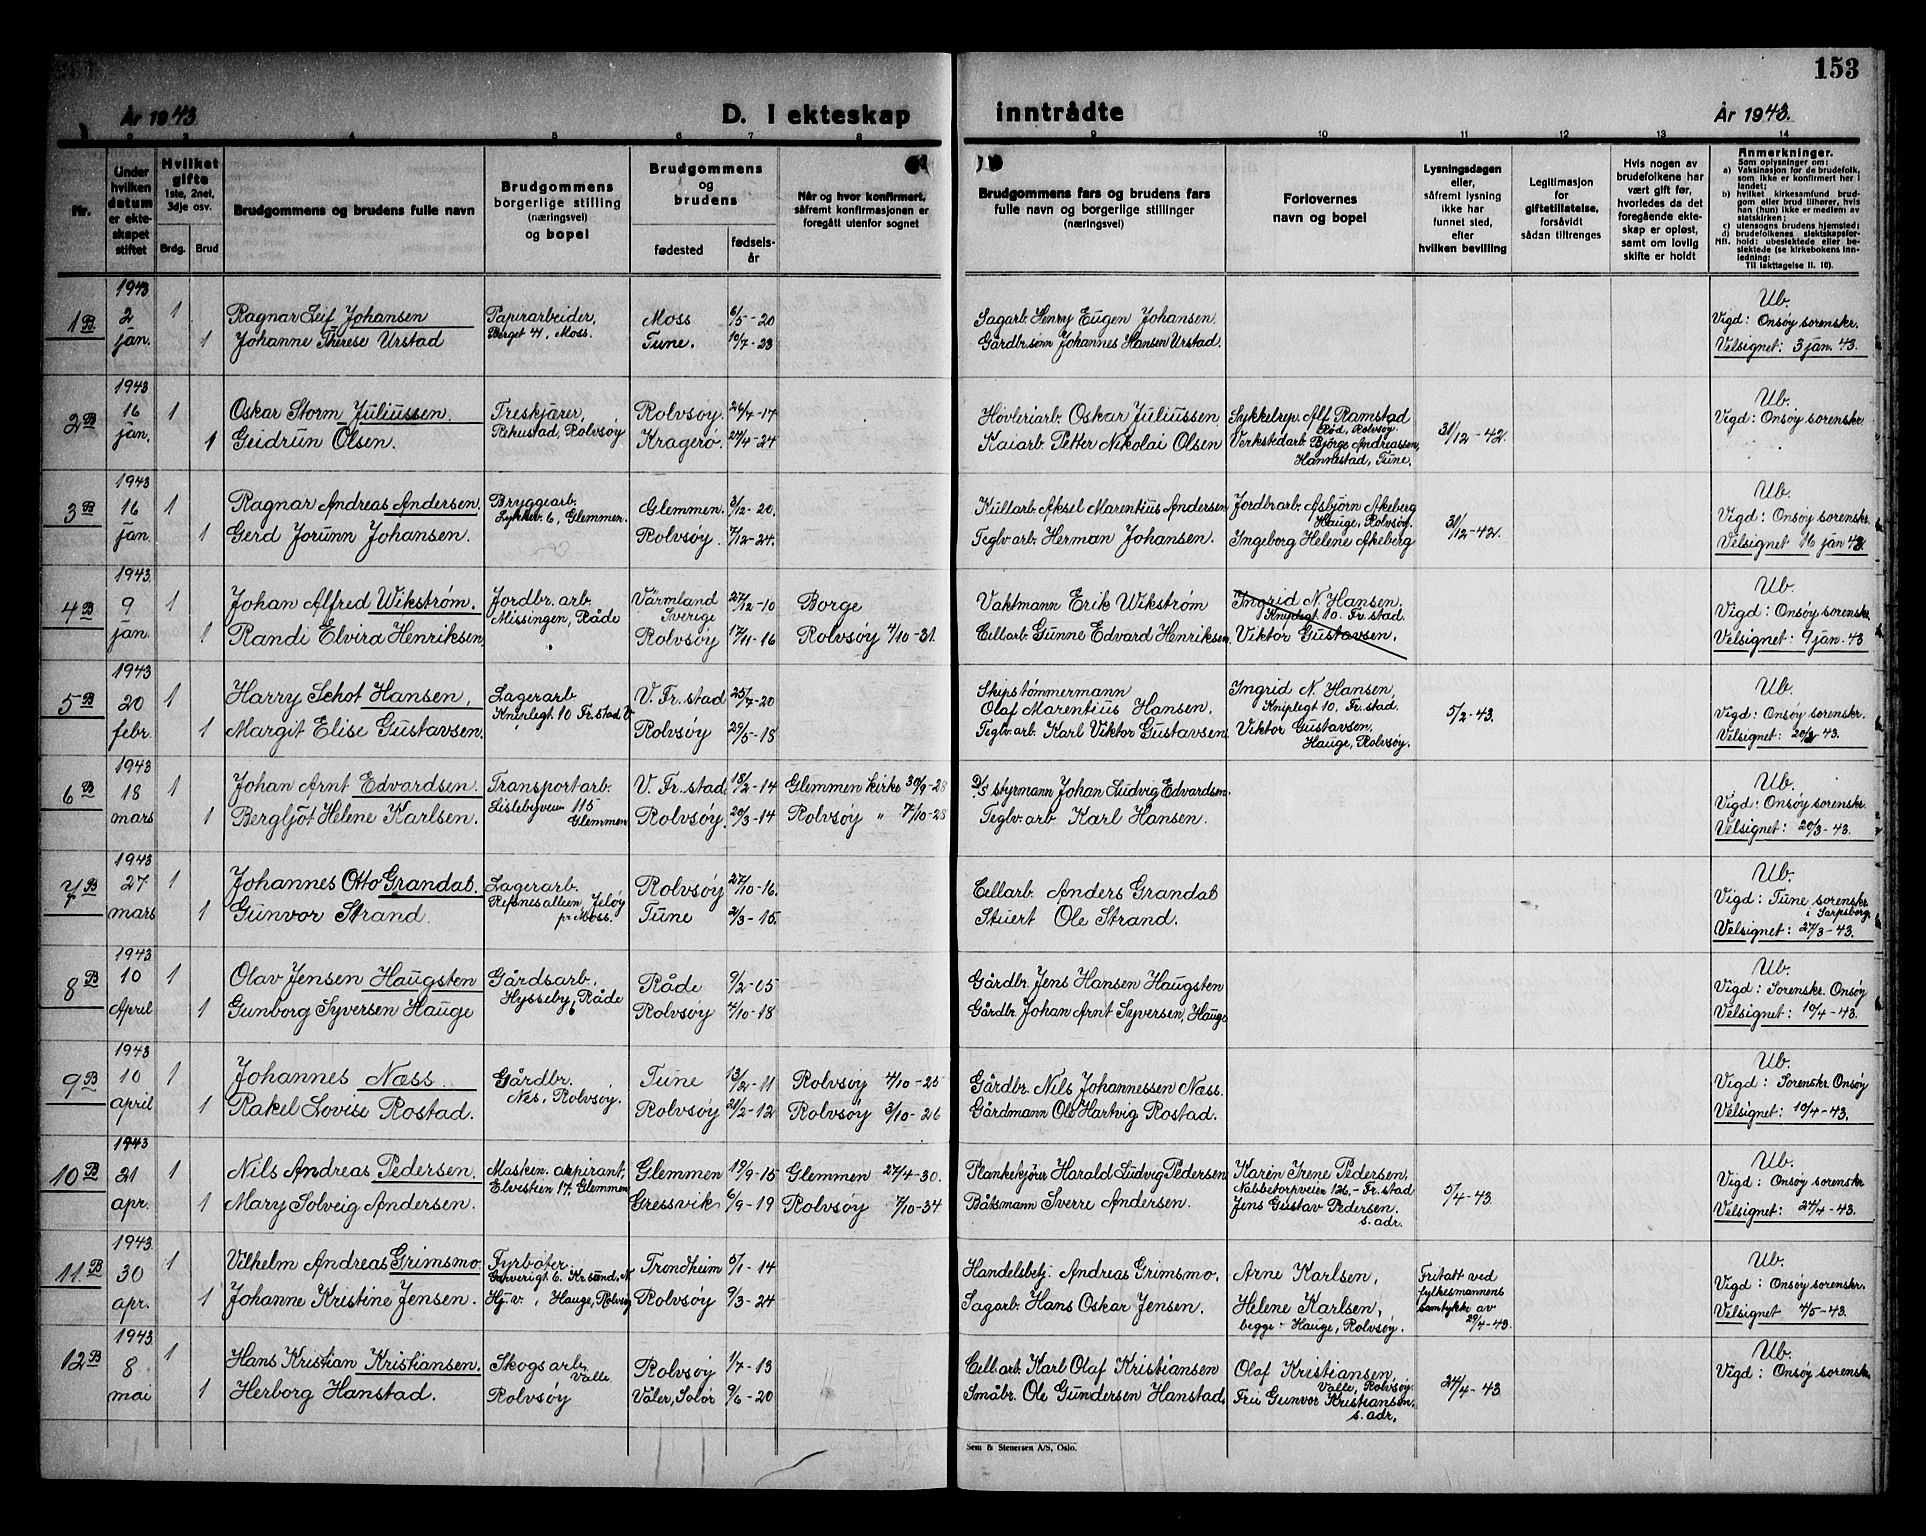 153
År 1943
D. I ekteskap inntrådte
År 1943.
2 3 4 5 6 7 8 9 10 11 12 13 14
Nr.
Under hvilken datum er ekteskapet stiftet
Hvilket gifte 1ste, 2net, 3dje osv.
Brdg. Brud
Brudgommens og brudens fulle navn
Brudgommens borgerlige stilling (næringsvei) og bopel
Brudgommens og brudens
fødested fødselsår
Når og hvor konfirmert, såfremt konfirmasjonen er foregått utenfor sognet
Brudgommens fars og brudens fars fulle navn og borgerlige stillinger (næringsvei)
Forlovernes navn og bopel
Lysningsdagen eller, såfremt lysning ikke har funnet sted, efter hvilken bevilling
Legitimasjon for giftetillatelse, forsåvidt sådan tiltrenges
Hvis nogen av brudefolkene har vært gift før, hvorledes da det foregående ekteskap er opløst, samt om lovlig skifte er holdt
Anmerkninger.
Som oplysninger om:
a) Vaksinasjon for de brudefolk, som ikke er konfirmert her i landet;
b) hvilket kirkesamfund brudgom eller brud tilhører, hvis han (hun) ikke er medlem av statskirken;
c) utensogns brudens hjemsted;
d) brudefolkenes slektskapsforhold: ubeslektede eller beslektede (se kirkebokens innledning;
NB. Til iakttagelse II. 10).
1943
1 B. 2 1 Ragnar Leif Johansen Papirarbeider, Moss 6/5-20 Sagarb. Henry Eugen Johansen. Ub.
Berget 41, Moss. Vigd: Onsøy sorenskr.
jan. 1 Johanne Therese Urstad Tune. 10/7-23 Gårdbr.sønn Johannes Hansen Urstad. Velsignet: 3 jan. 43.
1943
2 B 16 1 Oskar Storm Juliussen. Treskjærer, Rolvsøy. 26/4-17 Høvleriarb. Oskar Juliussen Sykkelrep. Alf Ramstad Ub.
Rekustad, Rolvsøy Rød, Rolvsøy. Vigd: Onsøy sorenskr.
jan. 1 Geidrun Olsen. Kragerø. 27/4-24 Kaiarb. Petter Nikolai Olsen Verkstedarb. Bjørge Andreassen, 31/12-42.
Hannestad, Tune.
1943
3 B 16 1 Ragnar Andreas Andersen. Bryggearb. Glemmen. 3/12-20. Kullarb. Aksel Marentius Andersen Jordbr.arb. Asbjørn Akeberg Ub.
Lykkev. 6, Glemmen. Hauge, Rolvsøy. Vigd: Onsøy sorenskr.
jan. 1 Gerd Jorunn Johansen. Rolvsøy. 7/12-24. Teglv.arb. Herman Johansen. Ingeborg Helene Akeberg 31/12-42. Velsignet 16 jan 43.
1943.
4 B 9 1 Johan Alfred Wikstrøm. Jordbr. arb. Värmland Sverige 27/12-10 Borge Vaktmann Erik Wikstrøm Ingrid N. Hansen, Ub.
Missingen, Råde Kniplegt 10. Fr.stad. Vigd: Onsøy sorenskr.
jan. 1 Randi Elvira Henriksen. Rolvsøy 17/11-16 Rolvsøy 4/10-31. Cellarb. Gunne Edvard Henriksen. Viktor Gustavsen, Velsignet: 9 jan. 43
1943
5 B 20 1 Harry Schot Hansen, Lagerarb. V. Fr.stad 25/7-20 Skipstømmermann Ingrid N. Hansen, Ub.
Kniplegt 10 Fr.stad V. Olaf Marentius Hansen. Kniplegt 10. Fr.stad. 5/2-43. Vigd: Onsøy sorenskr.
febr. 1 Margit Elise Gustavsen. Rolvsøy 29/5-18 Teglv.arb. Karl Viktor Gustavsen. Viktor Gustavsen, Velsignet: 20/2 43.
Hauge, Rolvsøy.
1943
6 B 18 1 Johan Arnt Edvardsen. Transportarb. V. Fr.stad. 18/2-14 Glemmen kirke 30/9-28 D/S styrmann Johan Ludvig Edvardsen. Ub.
Lislebyveien 115 Glemmen Vigd: Onsøy sorenskr.
mars 1 Bergljot Helene Karlsen. Rolvsøy. 20/3-14 Rolvsøy " 7/10-28 Teglv.arb. Karl Hansen. Velsignet: 20/3-43.
1943
7 B 27 1 Johannes Otto Grandal. Lagerarb. Rolvsøy 27/10-16. Cellarb Anders Grandal Ub.
Refsnesalleen, Jeløy pr. Moss. Vigd: Tune sorenskr. i Sarpsborg.
mars 1 Gunvor Strand. Tune 2/3-15. Stuert Ole Strand. Velsignet: 27/3-43.
1943
8 B 10 1 Olav Jensen Haugsten Gårdsarb. Råde 9/2-05 Gårdbr. Jens Hansen Haugsten Ub.
Hysseby, Råde Vigd: Sorenskr. Onsøy
April 1 Gunborg Syversen Hauge Rolvsøy 4/10-18 Gårdbr. Johan Arnt Syversen, Hauge Velsignet: 10/4-43.
1943
9 B 10 1 Johannes Næss. Gårdbr. Tune 13/2-11 Rolvsøy 4/10-25 Gårdbr. Nils Johannessen Næss. Ub.
Nes, Rolvsøy. Vigd: Sorenskr. Onsøy
april 1 Rakel Lovise Rostad. Rolvsøy 21/2-12 Rolvsøy 3/10-26 Gårdmann Ole Hartvig Rostad. Velsignet: 10/4-43.
1943
10 B 21 1 Nils Andreas Pedersen. Maskin. aspirant, Glemmen 19/9-15 Glemmen 27/4-30. Plankekjører Harald Ludvig Pedersen Karin Irene Pedersen, Ub.
Elvestien 17, Glemmen Nabbetorpveien 126,- Fr.stad 5/4-43. Vigd: Onsøy sorenskr
apr. 1 Mary Solveig Andersen. Gressvik 6/9-19 Rolvsøy 7/10-34 Båtsmann Sverre Andersen. Jens Gustav Pedersen. Velsignet: 24/4-43.
s. adr.
1943.
11. B 30 1 Vilhelm Andreas Grimsmo. Fyrbøter. Trondheim 5/1-14 Handelsbetj. Andreas Grimsmo. Arne Karlsen, Fritatt ved fylkesmannens samtykke av 29/4-43. Ub.
6. Kr.sund. N Vigd: Onsøy sorenskr.
apr. 1 Johanne Kristine Jensen. Hj.v., Hauge, Rolvsøy Rolvsøy 9/3-24 Sagarb. Hans Oskar Jensen. Helene Karlsen, Velsignet 4/5-43.
begge - Hauge, Rolvsøy.
1943.
12 B 8 1 Hans Kristian Kristiansen. Skogsarb. Rolvsøy 1/7-13 Cell.arb. Karl Olaf Kristiansen Olaf Kristiansen, Ub.
Valle, Valle, Rolvsøy. Vigd: Onsøy sorenskr.
mai 1 Herborg Hanstad. Rolvsøy Våler, Solør 9/6-20 Småbr. Ole Gundersen Hanstad. Fru Gunvor Kristiansen. 24/4-43.
s. adr.
Sem & Stenersen A/S, Oslo.